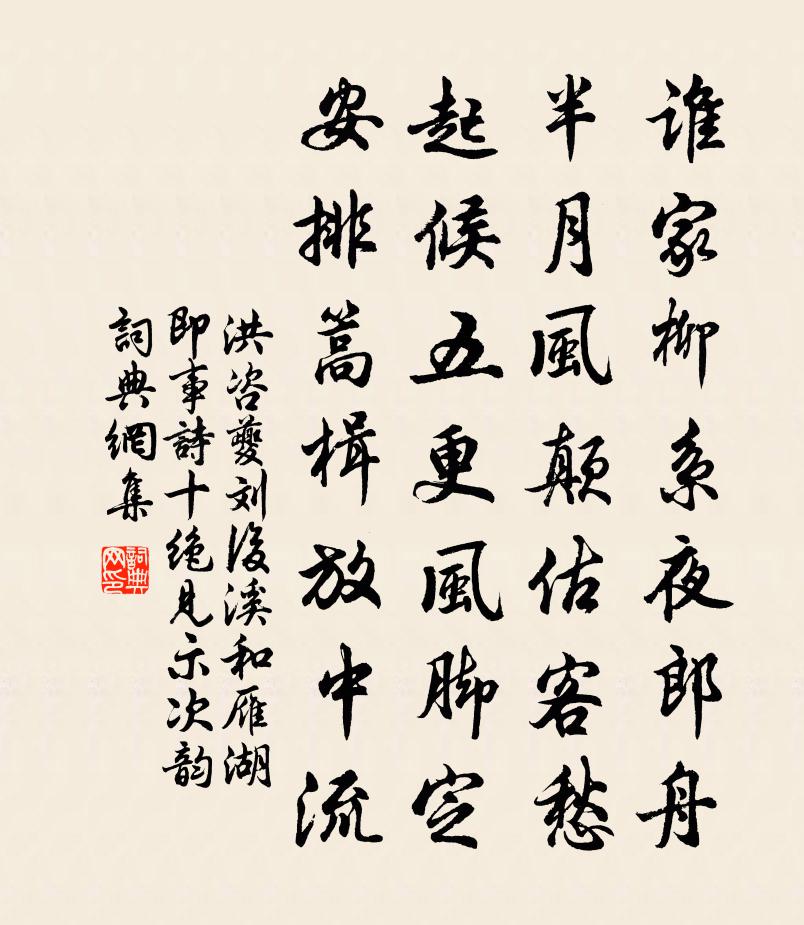 谁家柳系夜郎舟
半月風颠估客愁
起候五更風脚定
安排篙楫放中流
洪咨夔刘後溪和雁湖
即事詩十绝見示次韵
詞典網集
詞典网印